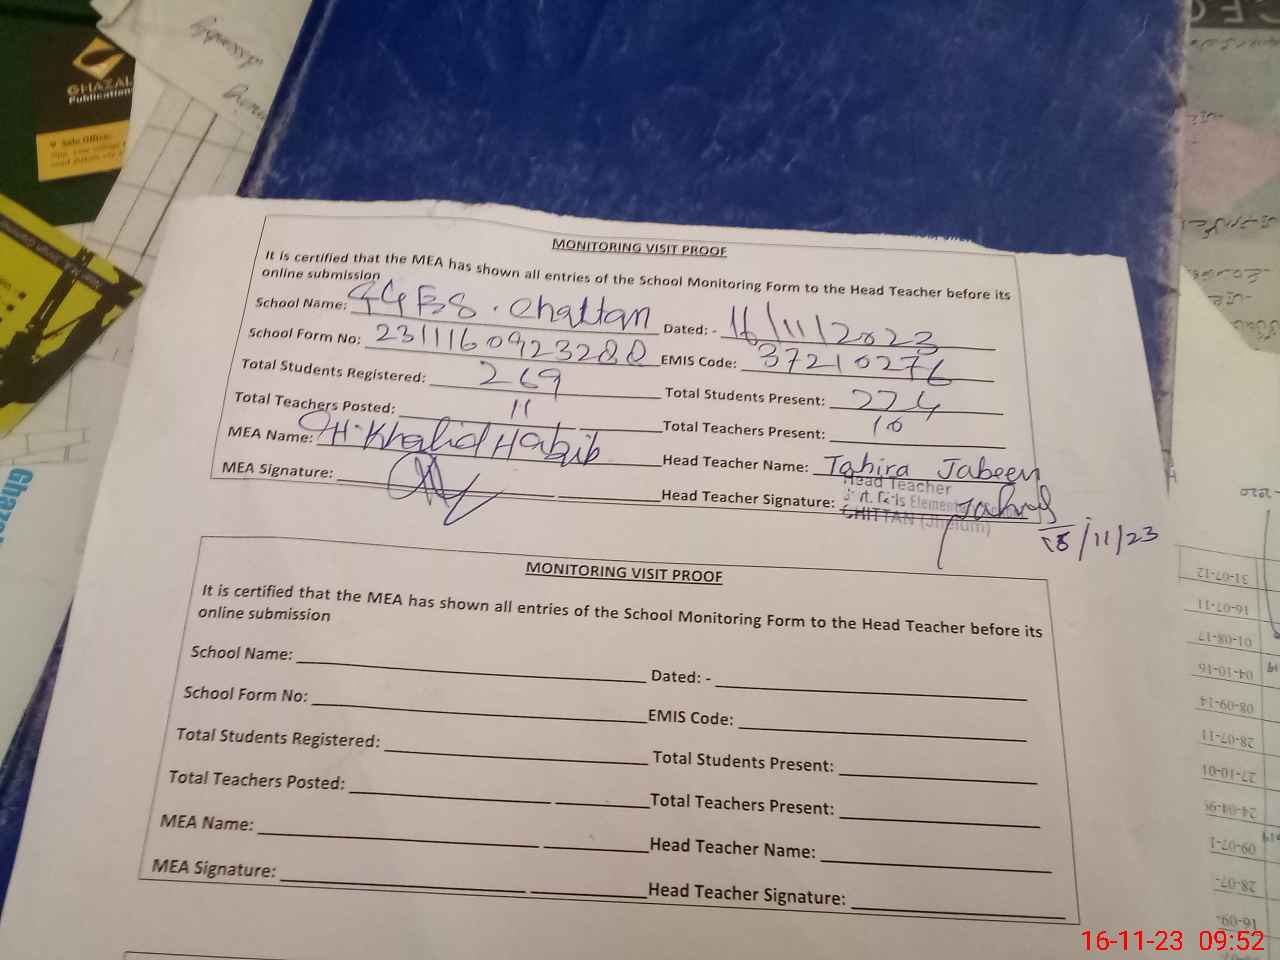 GHAZAL
Publication
Sale Office:
MONITORING VISIT PROOF
It is certified that the MEA has shown all entries of the School Monitoring Form to the Head Teacher before its
online submission
School Name: GGES. Chattan Dated: - 16/11/2023
School Form No: 2311160923280 EMIS Code: 37210276
Total Students Registered: 269 Total Students Present: 224
Total Teachers Posted: 11 Total Teachers Present: 10
MEA Name: Ch. Khalid Habib Head Teacher Name: Tahira Jabeen
MEA Signature: Head Teacher Signature:
Head Teacher
CHITTAN (Jhelum)
/11/23
MONITORING VISIT PROOF
It is certified that the MEA has shown all entries of the School Monitoring Form to the Head Teacher before its
online submission
School Name: Dated: -
School Form No: EMIS Code:
Total Students Registered: Total Students Present:
Total Teachers Posted: Total Teachers Present:
MEA Name: Head Teacher Name:
MEA Signature: Head Teacher Signature:
31-07-12
16-07-11
01-08-17
04-10-16
08-09-14
28-07-11
27-10-01
16-11-23 09:52